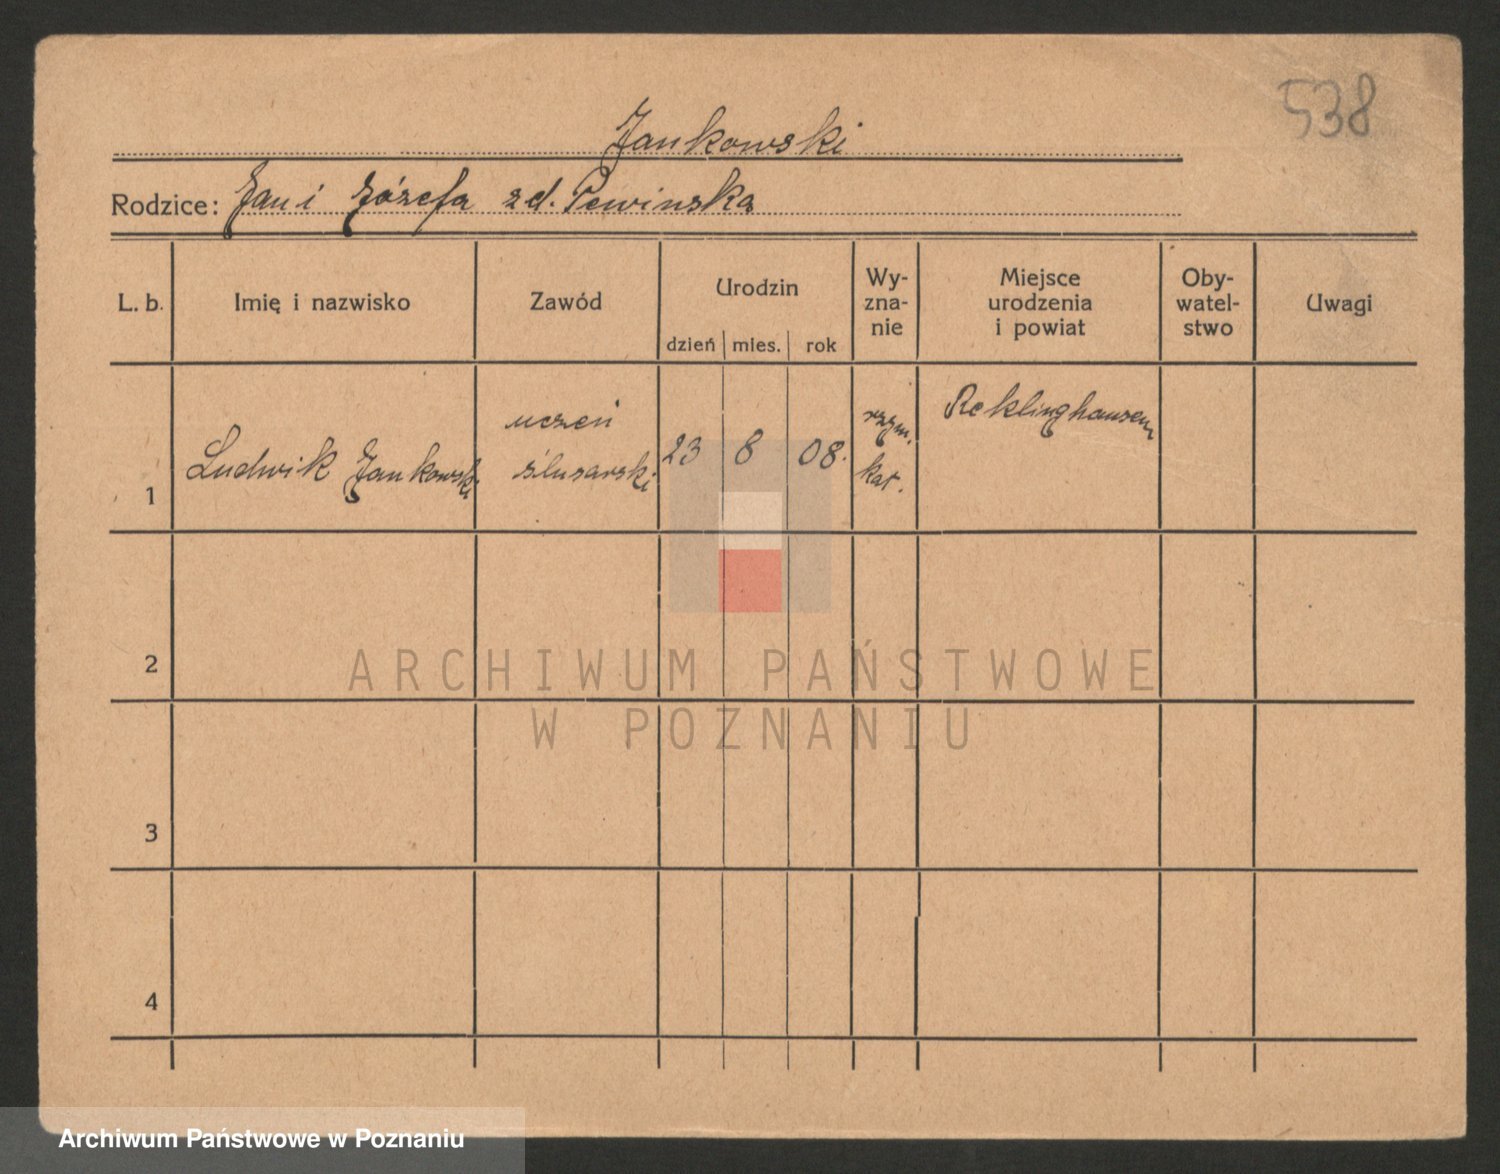 538
Jankowski
Rodzice: Jan i Józefa zd. Pewinska
L. b.
Imię i nazwisko
Zawód
Urodzin
dzień mies. rok
Wy-
zna-
nie
Miejsce
urodzenia
i powiat
Oby-
watel-
stwo
Uwagi
1
Ludwik Jankowski
uczeń
ślusarski
23 8 08.
rzym.
kat.
Reklinghausen
2
3
4
ARCHIWUM PAŃSTWOWE
W POZNANIU
Archiwum Państwowe w Poznaniu